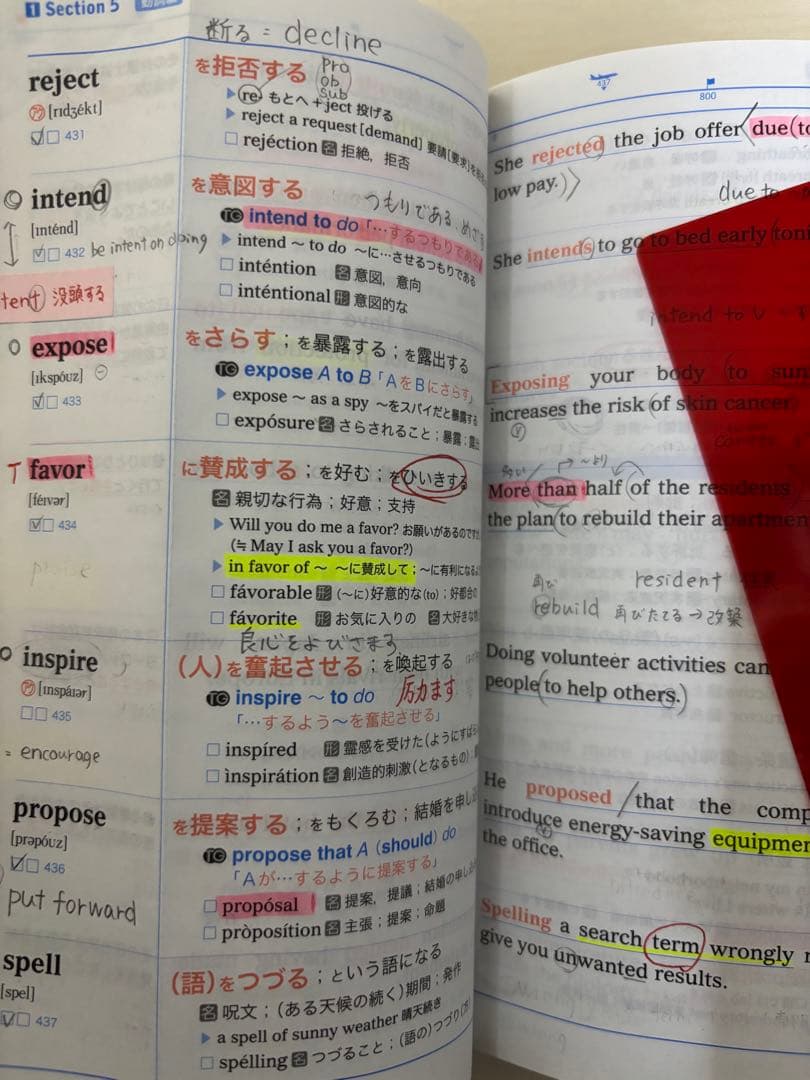 1 Section 5
断る = decline
reject
[rɪdʒékt]
431
を拒否する
Pro
ob
sub
re- もとへ + ject 投げる
reject a request [demand] 要請[要求]を
rejéction 名 拒絶，拒否
intend
[ɪnténd]
432 be intent on doing
没頭する
を意図する
つもりである、めざす
TG intend to do「…するつもりである」
intend ～ to do ～に…させるつもりである
inténtion 名 意図，意向
inténtional 形 意図的な
expose
[ɪkspóʊz]
433
をさらす；を暴露する；を露出する
TG expose A to B「AをBにさらす」
expose ～ as a spy ～をスパイだと暴露する
expósure 名 さらされること；暴露；露出
T favor
[féɪvər]
434
に賛成する；を好む；をひいきする
名 親切な行為；好意；支持
Will you do me a favor? お願いがあるのです
(≒ May I ask you a favor?)
in favor of ～ ～に賛成して；～に有利になる
fávorable 形 (～に)好意的な(to)；好都合の
fávorite 形 お気に入りの 名 大好きな
良心をよびさます
inspire
ア [ɪnspáɪər]
435
= encourage
(人)を奮起させる；を喚起する
TG inspire ～ to do 励ます
「…するよう～を奮起させる」
inspíred 形 霊感を受けた(ようにすば
ìnspirátion 名 創造的刺激(となるもの)
propose
[prəpóʊz]
436
put forward
を提案する；をもくろむ；結婚を申し込
TG propose that A (should) do
「Aが…するように提案する」
propósal 名 提案，提議；結婚の申し
pròposítion 名 主張；提案；命題
spell
[spel]
437
(語)をつづる；という語になる
名 呪文；(ある天候の続く)期間；発作
a spell of sunny weather 晴天続き
spélling 名 つづること；(語の)つづり
437
800
She rejected the job offer due (to
low pay.
due to
She intends to go to bed early (toni
intend to V
Exposing your body to sun
increases the risk of skin cancer
～より
More than half of the residents
the plan to rebuild their apartmen
再び
resident
rebuild 再びたてる→改築
Doing volunteer activities can
people to help others.
He proposed that the comp
introduce energy-saving equipme
the office.
Spelling a search term wrongly
give you unwanted results.